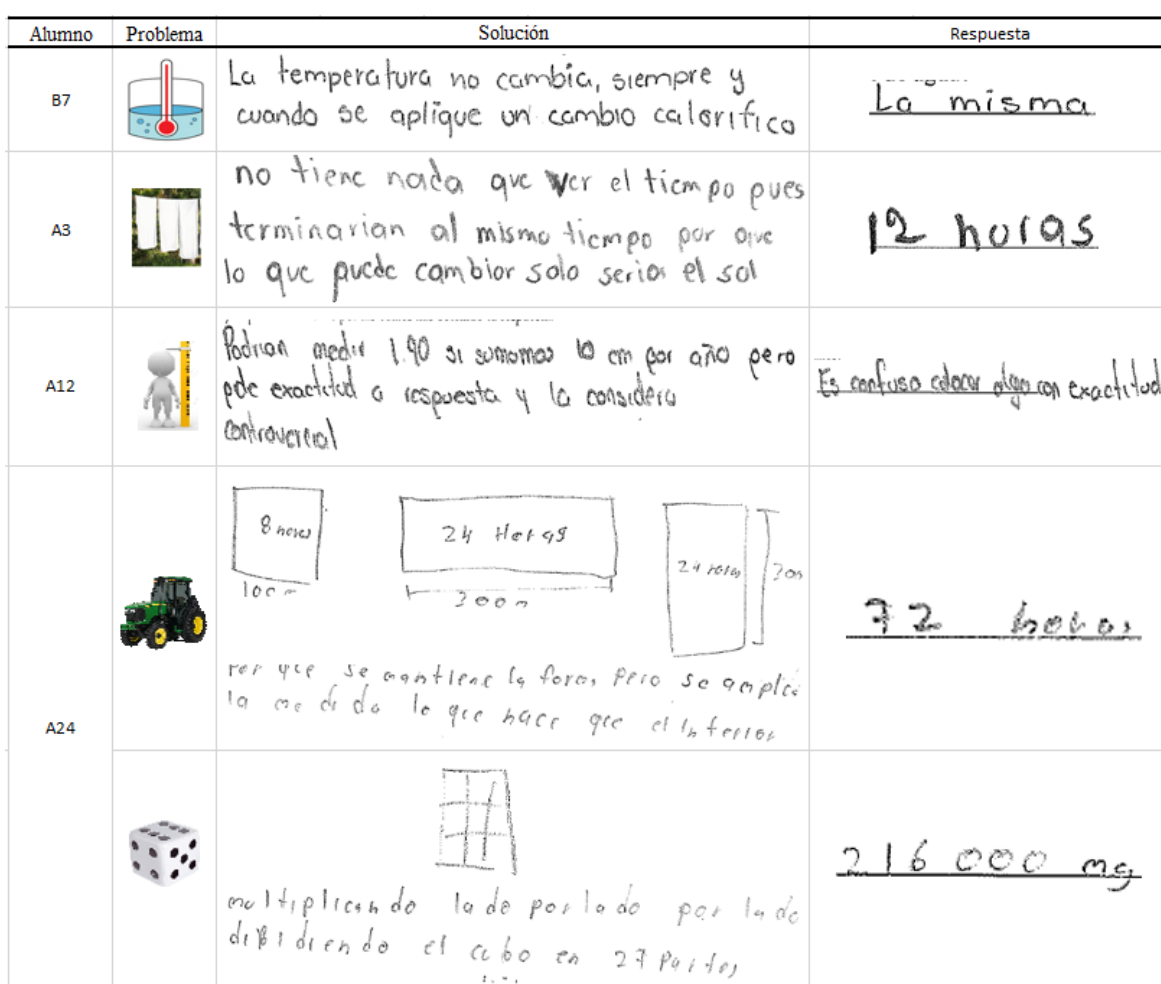 Alumno Problema Solución Respuesta
B7
La temperatura no cambia, siempre y
cuando se aplique un cambio calorifico
La misma
A3
no tiene nada que ver el tiempo pues
terminarian al mismo tiempo por que
lo que puede cambiar solo seria el sol
12 horas
A12
Podrian medir 1.90 si sumamos 10 cm por año pero
pde exactitud a respuesta y la considero
controvercial
Es confuso colocar algo con exactitud
A24
8 horas
100 m
24 Horas
300 m
24 horas
300
Por que se mantiene la forma pero se amplia
la medida lo que hace que el interior
72 horas
multiplicando lado por lado por lado
dibidiendo el cubo en 27 Partes
216 000 mg